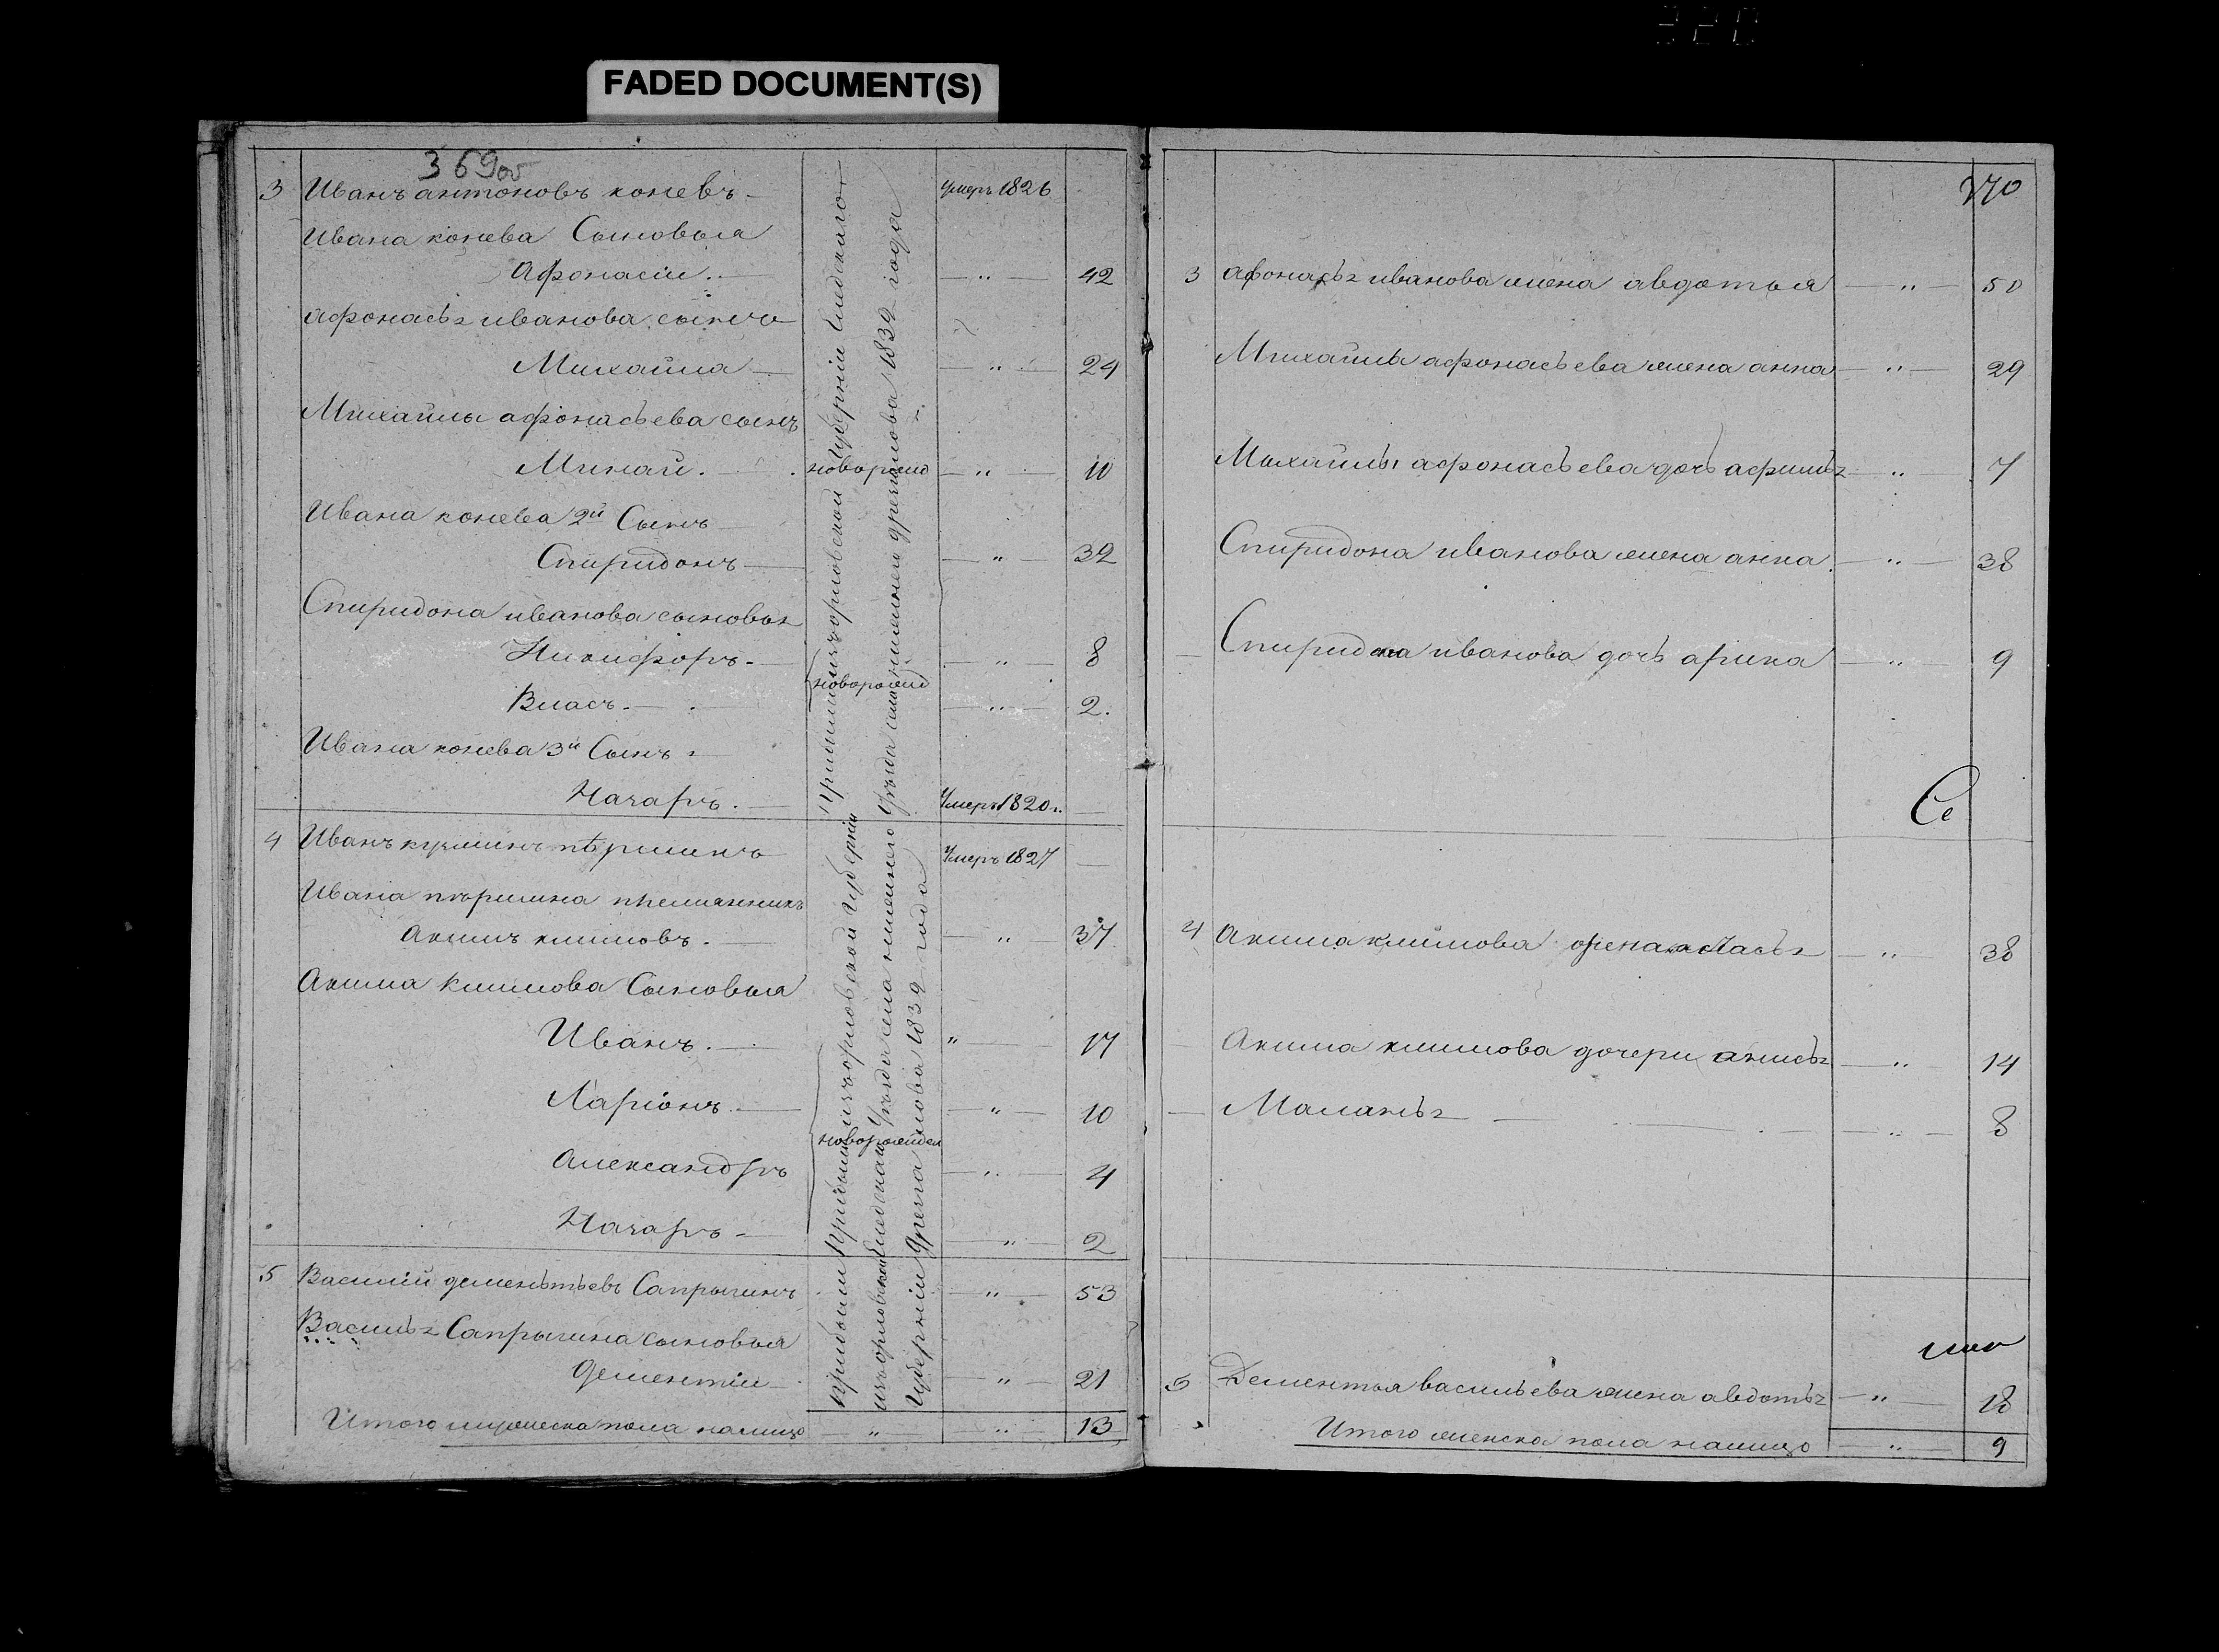 FADED DOCUMENT(S)
369об
3 Иванъ антоновъ коневъ
умеръ 1826
Ивана конева Сыновья
Афонасіи 42
Афонасья иванова сынъ
Михайла 24
Михайлы афонасьева сынъ
Минай новорожд 10
Ивана конева 2й Сынъ
Спиридонъ 32
Спиридона иванова сыновья
Никифоръ 8
новорожд
Власъ 2
Ивана конева 3й Сынъ
Назаръ умеръ 1820
4 Иванъ кузминъ першинъ умеръ 1827
Ивана першина племянникъ
Акимъ климовъ 37
Акима климова Сыновья
Иванъ 17
Ларіонъ 10
новорожден
Александръ 4
Назаръ 2
5 Василій деменьтьевъ Сапрыкинъ 53
Василья Сапрыкина сыновья
Дементіи 21
Итого мужеска пола налицо 13
изъ орловской Губерніи Елецкаго
Уѣзда села 1839 года
изъ орловской Губерніи
Уѣзда села 1839 года
прибыли
изъ орловской
Губерніи
370
3 Афонасья иванова жена авдотья 50
Михайлы афонасьева жена анна 29
Михайлы афонасьева дочь афимья 7
Спиридона иванова жена анна 38
Спиридона иванова дочь арина 9
Се
4 Акима климова жена 38
Акима климова дочери анисья 14
Маланья 8
5 Дементья васильева жена авдотья 18
Итого женска пола налицо 9